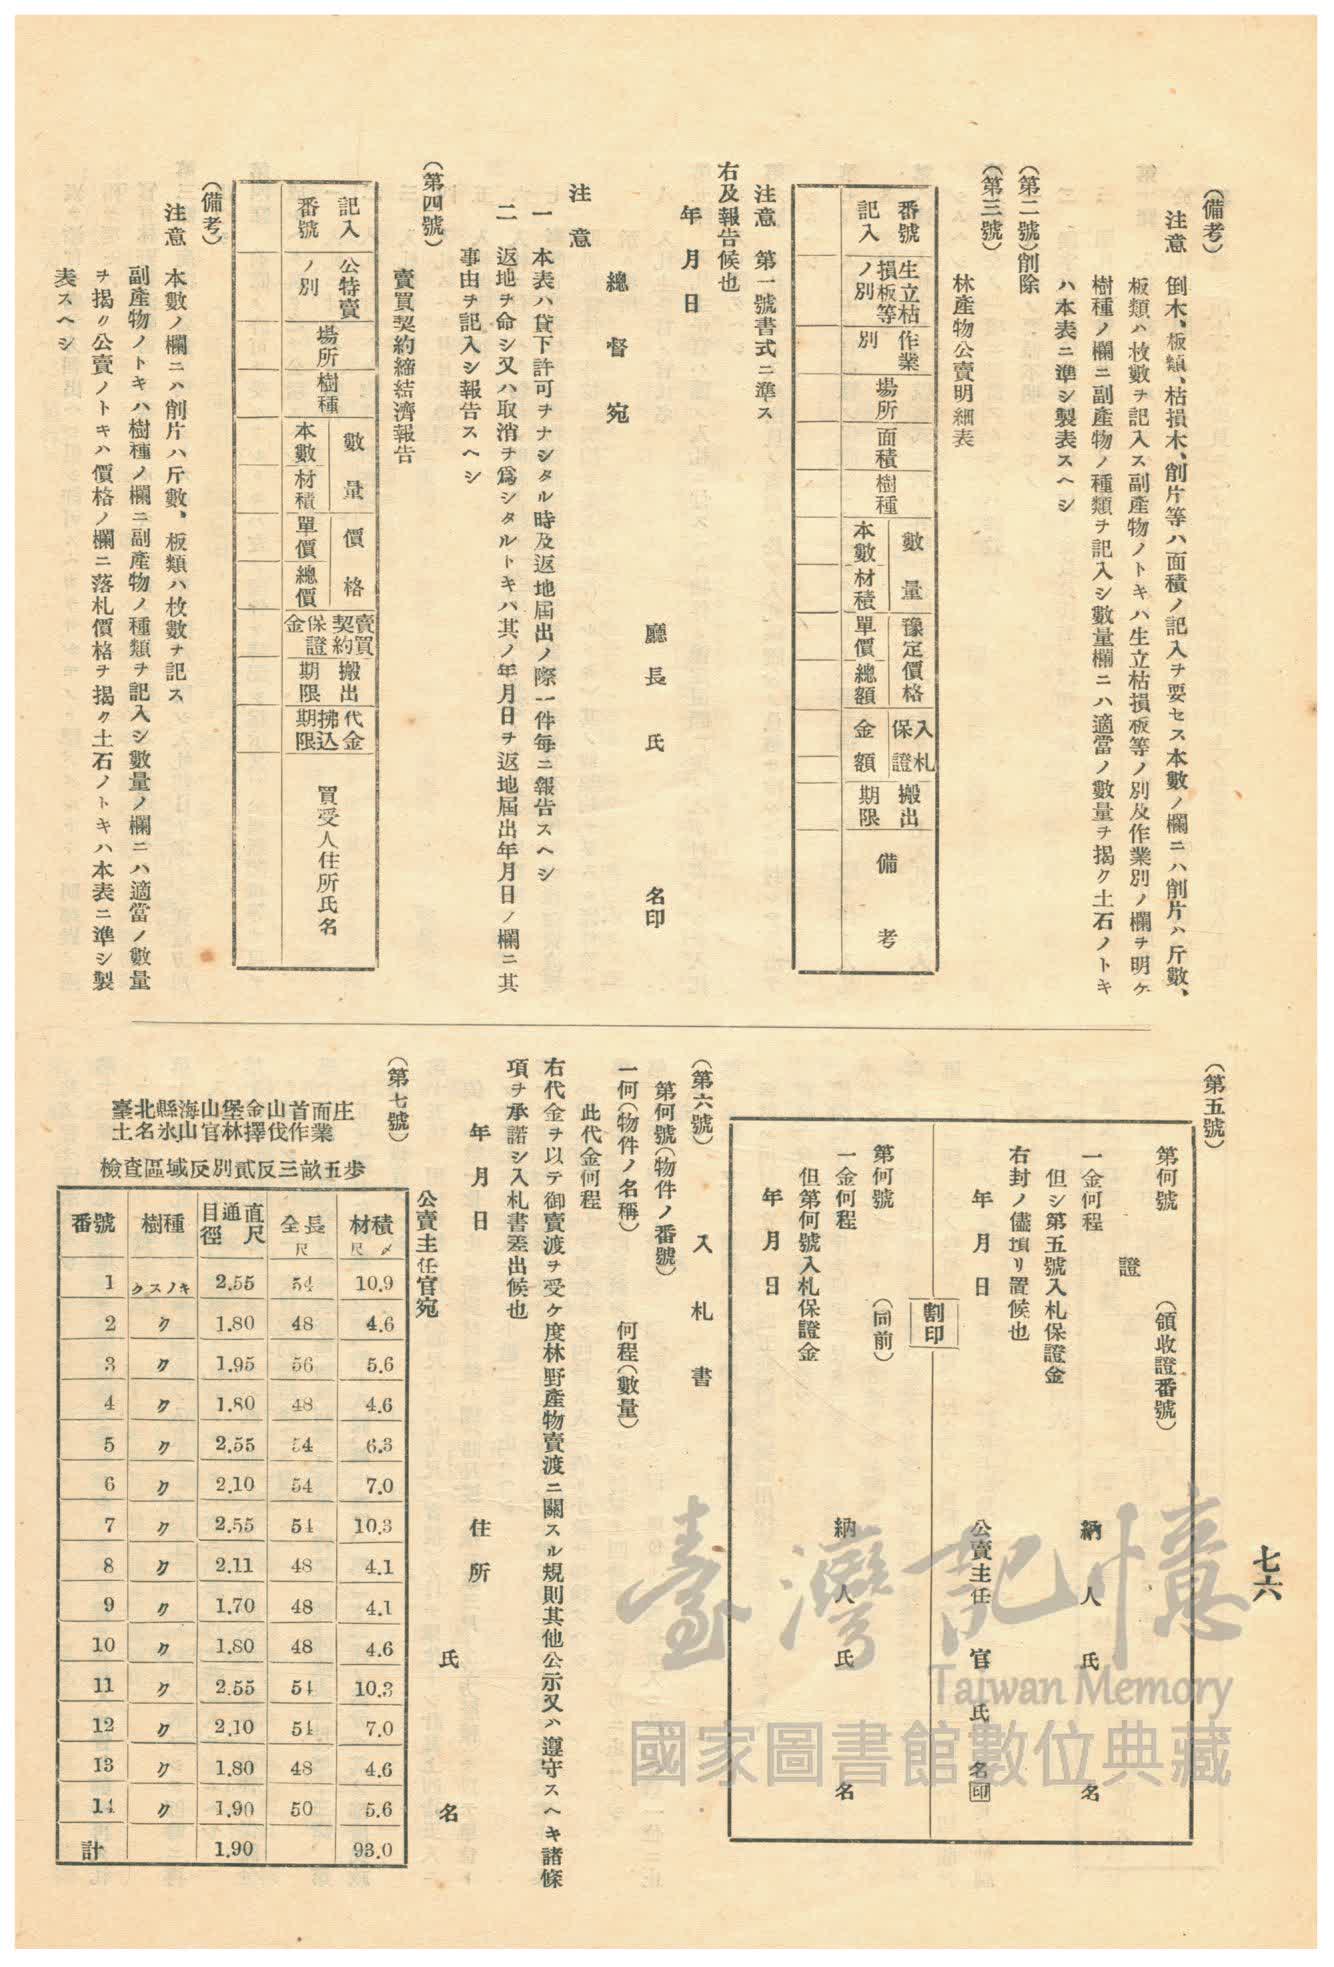 七六
（備考）
注意　倒木、板類、枯損木、削片等ハ面積ノ記入ヲ要セス本數ノ欄ニハ削片ハ斤數、
板類ハ枚數ヲ記入ス副產物ノトキハ生立枯損板等ノ別及作業別ノ欄ヲ明ケ
樹種ノ欄ニ副產物ノ種類ヲ記入シ數量欄ニハ適當ノ數量ヲ揭ク土石ノトキ
ハ本表ニ準シ製表スヘシ
（第二號）削除
（第三號）
林產物公賣明細表
番號記入
生立枯損板等ノ別
作業別
場所
面積
樹種
數量
本數
材積
豫定價格
單價
總額
入札保證金額
搬出期限
備考
注意　第一號書式ニ準ス
右及報告候也
年　月　日
廳長　氏　名印
總督宛
注意
一　本表ハ貸下許可ヲナシタル時及返地屆出ノ際一件每ニ報告スヘシ
二　返地ヲ命シ又ハ取消ヲ爲シタルトキハ其ノ年月日ヲ返地屆出年月日ノ欄ニ其
事由ヲ記入シ報告スヘシ
（第四號）
賣買契約締結濟報告
記入番號
公特賣ノ別
場所
樹種
數量
本數
材積
價格
單價
總價
賣買契約保證金
搬出期限
代金拂込期限
買受人住所氏名
（備考）
注意　本數ノ欄ニハ削片ハ斤數、板類ハ枚數ヲ記ス
副產物ノトキハ樹種ノ欄ニ副產物ノ種類ヲ記入シ數量ノ欄ニハ適當ノ數量
ヲ揭ク公賣ノトキハ價格ノ欄ニ落札價格ヲ揭ク土石ノトキハ本表ニ準シ製
表スヘシ
（第五號）
第何號　（領收證番號）
證
一金何程　納人　氏　名
但シ第五號入札保證金
右封ノ儘預リ置候也
年　月　日　公賣主任　官　氏　名印
割印
第何號　（同前）
一金何程　納人　氏　名
但第何號入札保證金
年　月　日
（第六號）
入札書
第何號（物件ノ番號）
一何（物件ノ名稱）　何程（數量）
此代金何程
右代金ヲ以テ御賣渡ヲ受ケ度林野產物賣渡ニ關スル規則其他公示又ハ遵守スヘキ諸條
項ヲ承諾シ入札書差出候也
年　月　日　住所
氏　名
公賣主任官宛
（第七號）
臺北縣海山堡金山首面庄
土名氷山官林擇伐作業
檢查區域反別貳反三畝五步
番號　樹種　目通直徑尺　全長尺　材積尺〆
1　クスノキ　2.55　54　10.9
2　〃　1.80　48　4.6
3　〃　1.95　56　5.6
4　〃　1.80　48　4.6
5　〃　2.55　54　6.3
6　〃　2.10　54　7.0
7　〃　2.55　54　10.3
8　〃　2.11　48　4.1
9　〃　1.70　48　4.1
10　〃　1.80　48　4.6
11　〃　2.55　54　10.3
12　〃　2.10　54　7.0
13　〃　1.80　48　4.6
14　〃　1.90　50　5.6
計　1.90　93.0
臺灣記憶
Taiwan Memory
國家圖書館數位典藏